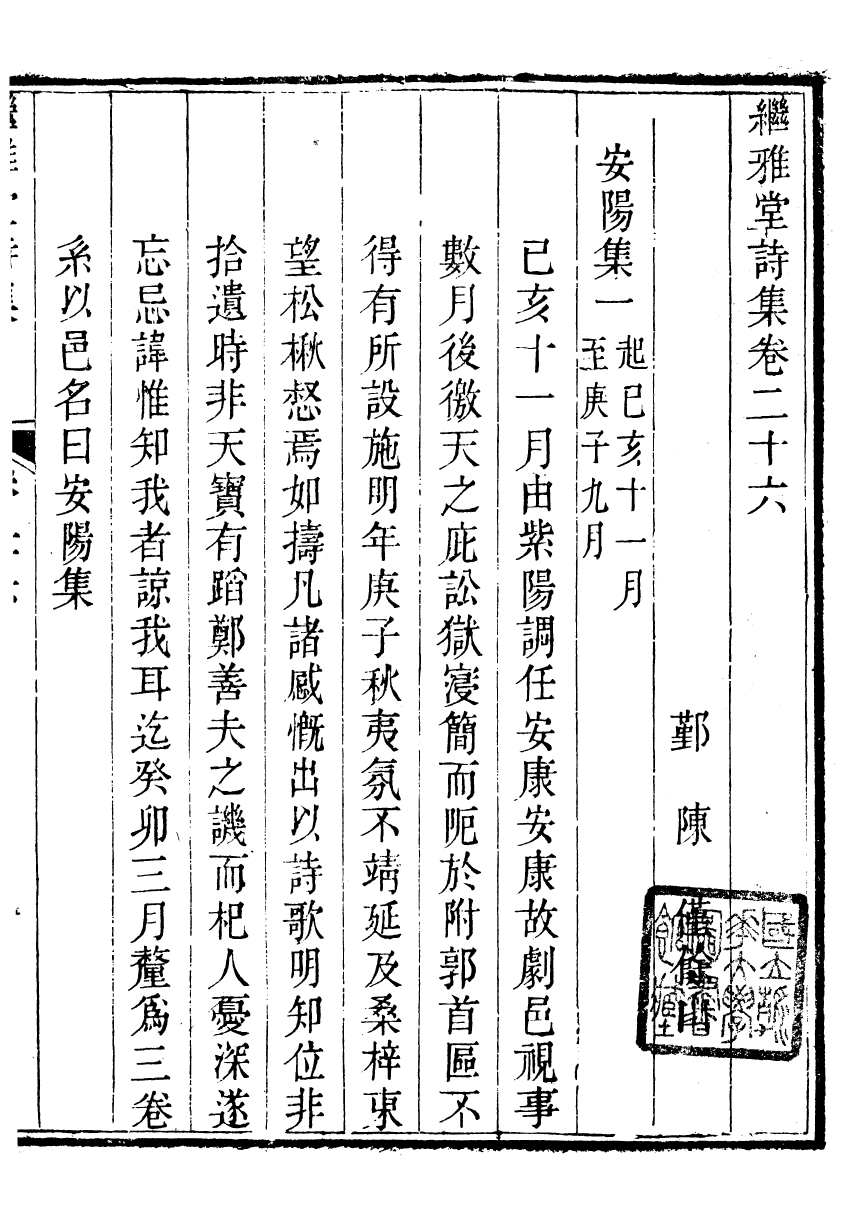 繼雅堂詩集卷二十六
鄞 陳 僅 餘山
安陽集一 起已亥十一月
至庚子九月
已亥十一月由紫陽調任安康安康故劇邑視事
數月後徼天之庇訟獄寖簡而阨於附郭首區不
得有所設施明年庚子秋夷氛不靖延及桑梓東
望松楸惄焉如擣凡諸感慨出以詩歌明知位非
拾遺時非天寶有蹈鄭善夫之譏而杞人憂深遂
忘忌諱惟知我者諒我耳迄癸卯三月釐爲三卷
系以邑名曰安陽集